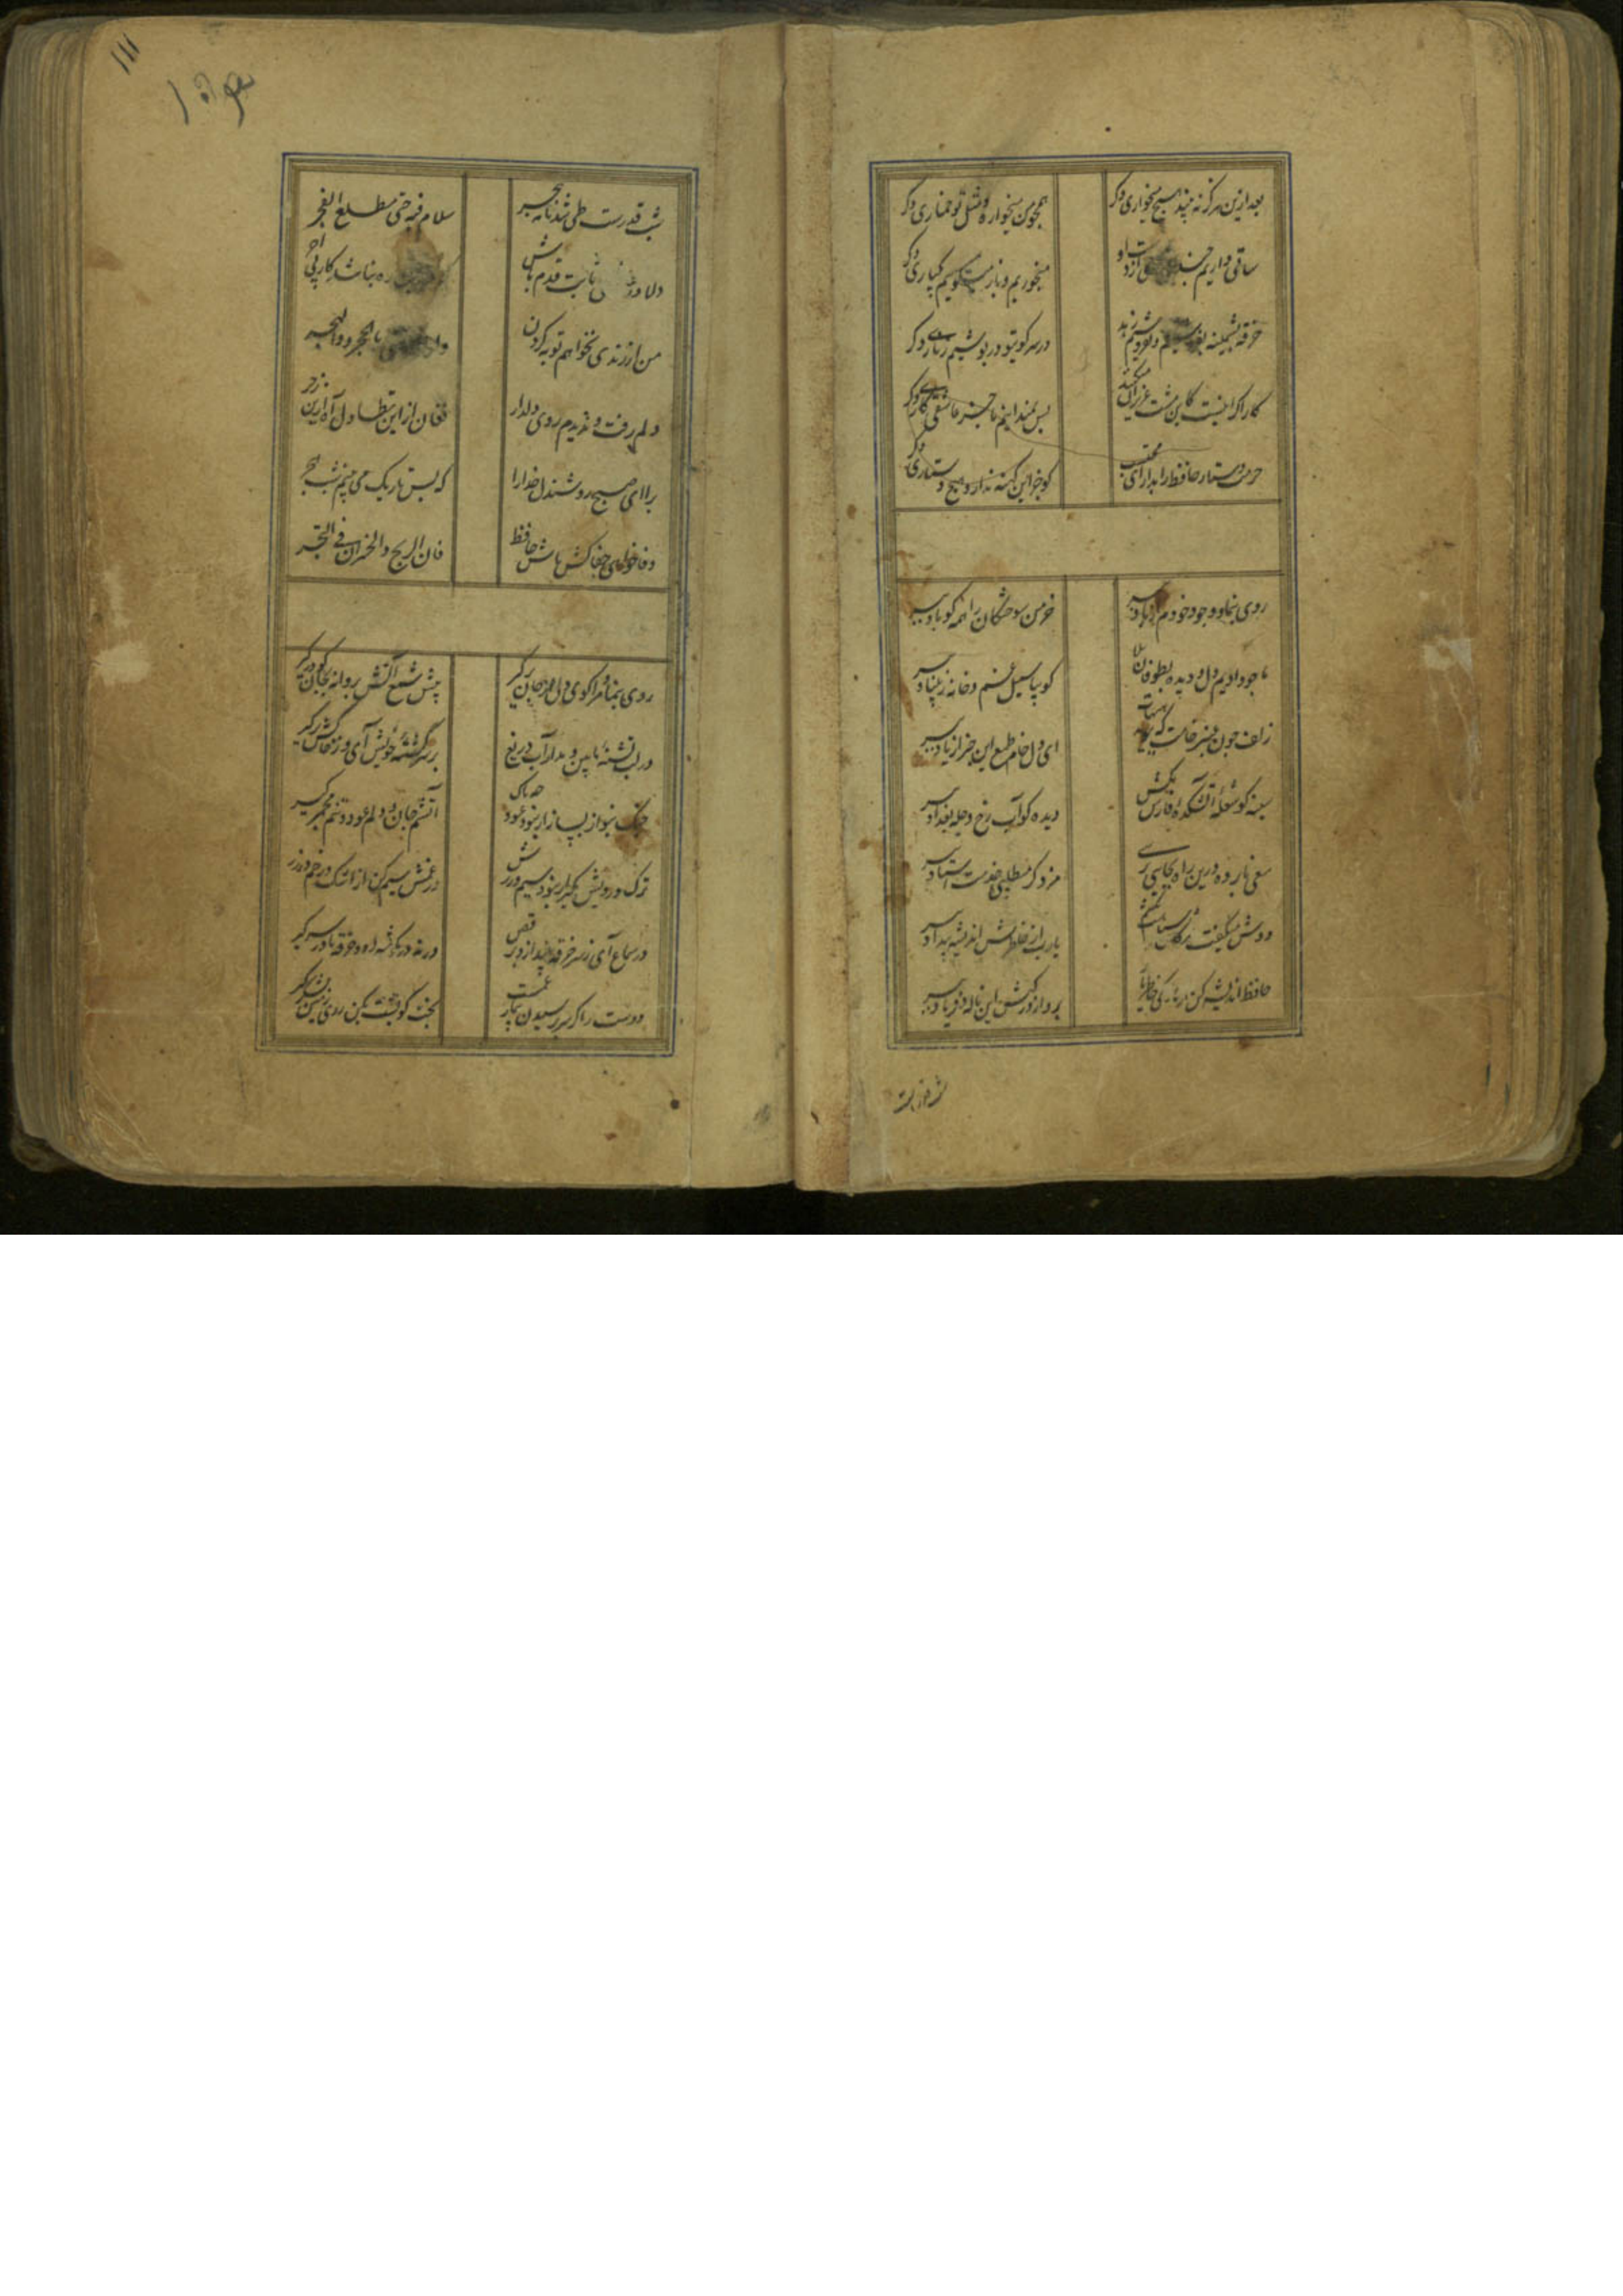 بعد ازین هرگز نه بیند هیچ میخواری دگر
همچو من میخواره و مثل تو خماری دگر
ساقی داریم
میخوریم و باز میگوییم که باری دگر
خرقه پشمینه بفروشیم و
در سر کویتو در پوشیم زناری دگر
کار اگر اینست کاین
بس نمیدانیم ما جز عاشقی کاری دگر
حرمت دستار حافظ را بدار ای محتسب
کو جز این کهنه ندارد هیچ دستاری دگر
روی بنما و وجود خودم از یاد ببر
خرمن سوختگان را همه کو باد ببر
ما چو دادیم دل و دیده بطوفان بلا
کو بیا سیل غم و خانه ز بنیاد ببر
زلف چون عنبر خامت که ببوید هیهات
ای دل خام طمع این خبر از یاد ببر
سینه کو شعله آتشکده فارس بکش
دیده کو آب رخ دجله بغداد ببر
سعی نابرده درین راه بجایی نرسی
مزد اگر میطلبی خدمت استاد ببر
دوش میگفت
یا رب از خاطرش اندیشه بیداد ببر
حافظ اندیشه کن از نازکی خاطر یار
برو از درکهش این ناله و فریاد ببر
شب قدرست
۱۱۱
شب قدرست و طی شد نامه هجر
سلام فیه حتی مطلع الفجر
دلا در ثابت قدم باش
که در این ره نباشد کار بی اجر
من از رندی نخواهم توبه کردن
ولو آذیتنی بالهجر والحجر
دلم رفت و ندیدم روی دلدار
فغان از این تطاول آه ازین زجر
برا ای صبح روشندل خدا را
که بس تاریک می بینم شب هجر
وفا خواهی جفاکش باش حافظ
فان الربح والخسران فی التجر
روی بنما و مرا کوی دل از جان برگیر
پیش شمع آتش پروانه بجان کو درگیر
در لب تشنه ما بین و مدار آب دریغ
بر سر کشته خویش آی و ز خاکش برگیر
چنگ بنواز و بساز ار نبود عود چه باک
آتشم جان و دلم عود و تنم مجمر گیر
ترک درویش مگیر ار نبود سیم و زرش
در غمش سیم کن از اشک و رخم را زر گیر
در سماع آی ز سر خرقه بینداز و برقص
ورنه در گوشه رو و خرقه ما در سر گیر
دوست
بخت گو پشت بکن روی زمین لشکر گیر